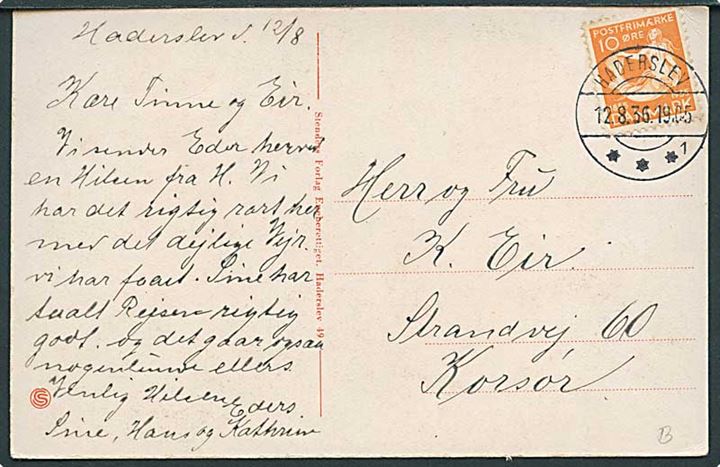 Haderslev d. 12/8
Kære Tinne og Eir.
Vi sender Eder herved
en Hilsen fra H. Vi
har det rigtig rart her
med det dejlige Vejr
vi har faaet. Sine har
taalt Rejsen rigtig
godt. og det gaar ogsaa
nogenlunde ellers.
Venlig Hilsen
Eders
Sine, Hans og Kathrine
Stenders Forlag Eneberettiget. Haderslev 49
POSTFRIMÆRKE
10 ØRE
DANMARK
HADERSLEV
12.8.36.19
1
Herr og Fru
K. Eir.
Strandvej 60
Korsør
B